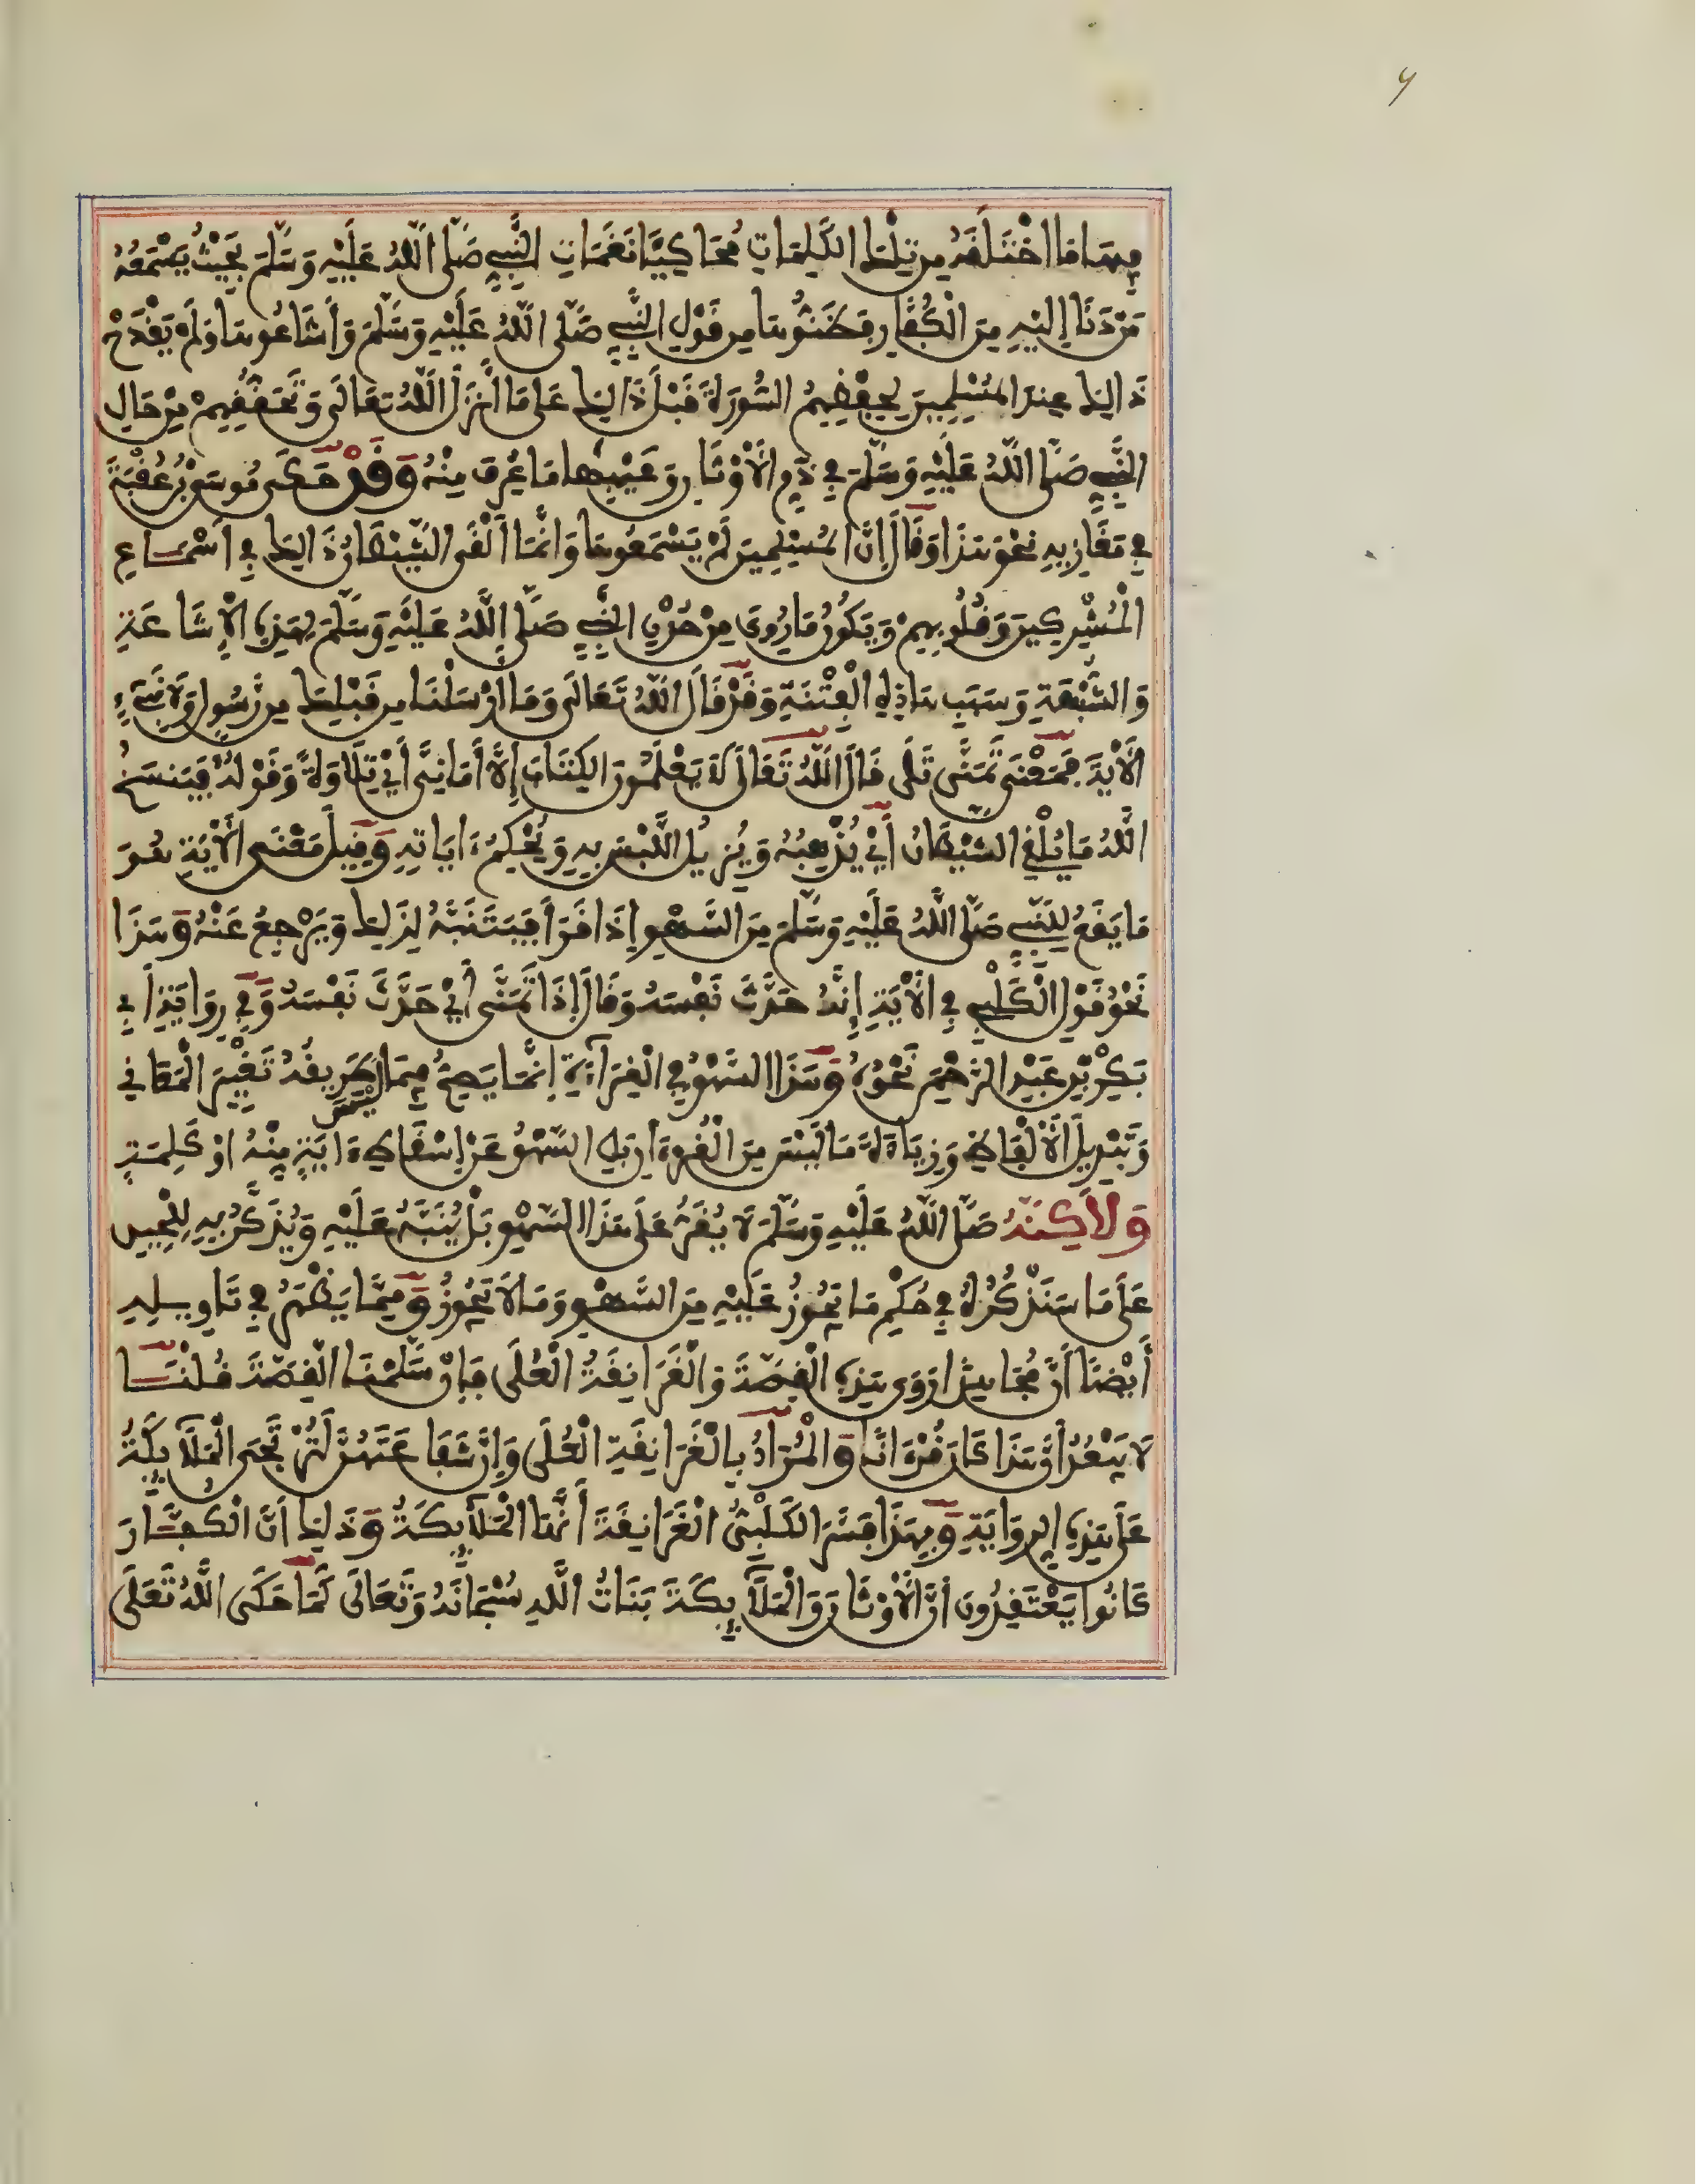 فِيهَا مَا اخْتَلَقَهُ مِن تِلْكَ الكَلِمَاتِ مُحَاكِيًا نَغَمَاتِ النَّبِيِّ صَلَّى اللَّهُ عَلَيْهِ وَسَلَّمَ بِحَيْثُ يَسْمَعُهُ
مَنْ دَنَا إِلَيْهِ مِنَ الْكُفَّارِ فَظَنُّوهَا مِن قَوْلِ النَّبِيِّ صَلَّى اللَّهُ عَلَيْهِ وَسَلَّمَ وَأَشَاعُوهَا وَلَمْ يَقْدَحْ
ذَالِكَ عِندَ المُسْلِمِينَ لِحِفْظِهِمُ السُّورَةَ قَبْلَ ذَالِكَ عَلَى مَا أَنزَلَ اللَّهُ تَعَالَى وَتَحَقُّقِهِمْ مِنْ حَالِ
النَّبِيِّ صَلَّى اللَّهُ عَلَيْهِ وَسَلَّمَ فِي ذَمِّ الْأَوْثَانِ وَعَيْبِهَا مَا عُرِفَ مِنْهُ وَقَدْ حَكَى مُوسَى بْنُ عُقْبَةَ
فِي مَغَازِيهِ نَحْوَ هَذَا وَقَالَ إِنَّ المُسْلِمِينَ لَمْ يَسْمَعُوهَا وَإِنَّمَا أَلْقَى الشَّيْطَانُ ذَالِكَ فِي أَسْمَاعِ
الْمُشْرِكِينَ وَقُلُوبِهِمْ وَيَكُونُ مَا رُوِيَ مِنْ حُزْنِ النَّبِيِّ صَلَّى اللَّهُ عَلَيْهِ وَسَلَّمَ لِهَذِهِ الْإِشَاعَةِ
وَالشُّبْهَةِ وَسَبَبِ هَاذِهِ الْفِتْنَةِ وَقَدْ قَالَ اللَّهُ تَعَالَى وَمَا أَرْسَلْنَا مِن قَبْلِكَ مِن رَّسُولٍ وَلَا نَبِيءٍ
الْآيَةَ فَمَعْنَى تَمَنَّى تَلَى قَالَ اللَّهُ تَعَالَى لَا يَعْلَمُونَ الكِتَابَ إِلَّا أَمَانِيَّ أَيْ تِلَاوَةً وَقَوْلُهُ فَيَنسَخُ
اللَّهُ مَا يُلْقِي الشَّيْطَانُ أَيْ يُذْهِبُهُ وَيُزِيلُ اللَّبْسَ بِهِ وَيُحْكِمُ ءَايَاتِهِ وَقِيلَ مَعْنَى الْآيَةِ هُوَ
مَا يَقَعُ لِلنَّبِيِّ صَلَّى اللَّهُ عَلَيْهِ وَسَلَّمَ مِنَ السَّهْوِ إِذَا قَرَأَ فَيَتَنَبَّهُ لِذَلِكَ وَيَرْجِعُ عَنْهُ وَهَذَا
نَحْوُ قَوْلِ الْكَلْبِيِّ فِي الْآيَةِ إِنَّهُ حَدَّثَ نَفْسَهُ وَقَالَ إِذَا تَمَنَّى أَيْ حَدَّثَ نَفْسَهُ وَفِي رِوَايَةِ أَبِي
بَكْرِ بْنِ عَبْدِ الرَّحْمَنِ نَحْوُهُ وَهَذَا السَّهْوُ فِي الْقِرَاءَةِ إِنَّمَا يَصِحُّ فِيمَا لَيْسَ طَرِيقُهُ تَغْيِيرَ الْمَعَانِي
وَتَبْدِيلَ الْأَلْفَاظِ وَزِيَادَةَ مَا لَيْسَ مِنَ الْقُرءَانِ بَلِ السَّهْوُ عَنْ إِسْقَاطِ ءَايَةٍ مِنْهُ أَوْ كَلِمَةٍ
وَلَاكِنَّهُ صَلَّى اللَّهُ عَلَيْهِ وَسَلَّمَ لَا يُقَرُّ عَلَى هَذَا السَّهْوِ بَلْ يُنَبَّهُ عَلَيْهِ وَيُذَكَّرُ بِهِ لِلْحِينِ
عَلَى مَا سَنَذْكُرُهُ فِي حُكْمِ مَا يَجُوزُ عَلَيْهِ مِنَ السَّهْوِ وَمَا لَا يَجُوزُ وَمِمَّا يَظْهَرُ فِي تَاوِيلِهِ
أَيْضًا أَنَّ مُجَاهِدًا رَوَى هَذِهِ الْقِصَّةَ وَالْغَرَانِقَةُ الْعُلَى فَإِنْ سَلَّمْنَا الْقِصَّةَ قُلْنَا
لَا يَبْعُدُ أَنَّ هَذَا كَانَ قُرْءَانًا وَالْمُرَادُ بِالْغَرَانِقَةِ الْعُلَى وَإِنَّ شَفَاعَتَهُنَّ لَتُرْتَجَى الْمَلَائِكَةُ
عَلَى هَذِهِ الرِوَايَةِ وَبِهَذَا فَسَّرَ الكَلْبِيُّ الْغَرَانِقَةَ أَنَّهَا الْمَلَائِكَةُ وَذَلِكَ أَنَّ الْكُفَّارَ
كَانُوا يَعْتَقِدُونَ أَنَّ الْأَوْثَانَ وَالْمَلَائِكَةَ بَنَاتُ اللَّهِ سُبْحَانَهُ وَتَعَالَى كَمَا حَكَى اللَّهُ تَعَلَى